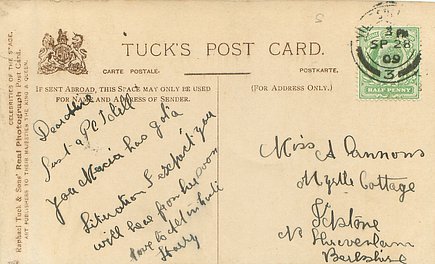 TUCK'S POST CARD.
CARTE POSTALE.
POSTKARTE.
IF SENT ABROAD, THIS SPACE MAY ONLY BE USED
FOR NAME AND ADDRESS OF SENDER.
(FOR ADDRESS ONLY.)
CELEBRITIES OF THE STAGE.
Raphael Tuck & Sons' Real Photograph Post Card.
ART PUBLISHERS TO THEIR MAJESTIES THE KING & QUEEN.
3 PM
SP 28
09
3
HALF PENNY
Just a PC to tell
you has got a
Situation I expect you
will hear from her soon
love to
Harry
Miss A
Myrtle Cottage
Berkshire